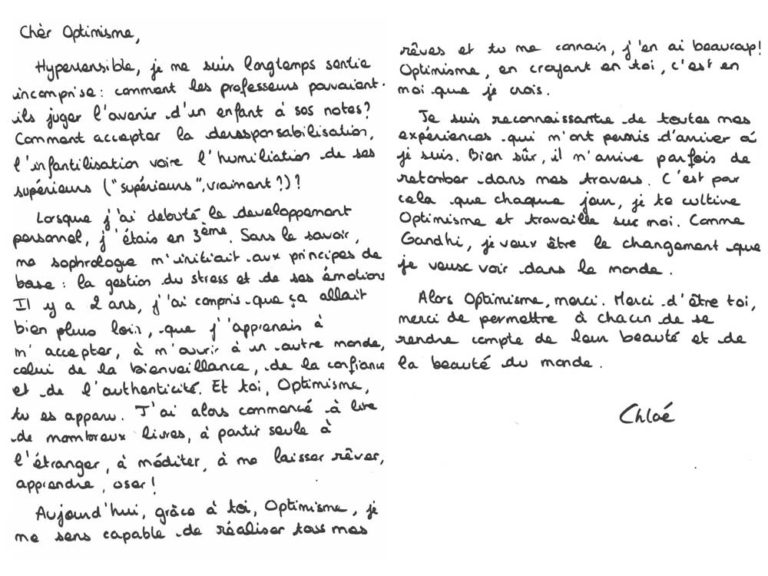 Chèr Optimisme,
Hypersensible, je me suis longtemps sentie
incomprise : comment les professeurs pouvaient-
ils juger l'avenir d'un enfant à ses notes?
Comment accepter la deresponsabilisation,
l'infantilisation voire l'humiliation de ses
supérieurs ("supérieurs", vraiment?)?
Lorsque j'ai debuté le developpement
personnel, j'étais en 3ème. Sans le savoir,
ma sophrologue m'initiait aux principes de
base : la gestion du stress et de ses émotions
Il y a 2 ans, j'ai compris que ça allait
bien plus loin, que j'apprenais à
m'accepter, à m'ouvrir à un autre monde,
celui de la bienveillance, de la confiance
et de l'authenticité. Et toi, Optimisme,
tu es apparu. J'ai alors commencé à lire
de nombreux livres, à partir seule à
l'étranger, à méditer, à me laisser rêver,
apprendre, oser!
Aujourd'hui, grâce à toi, Optimisme, je
me sens capable de réaliser tous mes
rêves et tu me connais, j'en ai beaucoup!
Optimisme, en croyant en toi, c'est en
moi que je crois.
Je suis reconnaissante de toutes mes
expériences qui m'ont permis d'arriver où
je suis. Bien sûr, il m'arrive parfois de
retomber dans mes travers. C'est par
cela que chaque jour, je te cultive
Optimisme et travaille sur moi. Comme
Gandhi, je veux être le changement que
je veux voir dans le monde.
Alors Optimisme, merci. Merci d'être toi,
merci de permettre à chacun de se
rendre compte de leur beauté et de
la beauté du monde.
Chloé